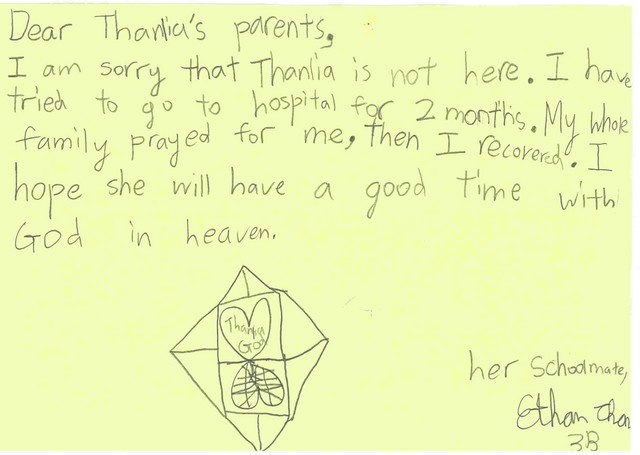 Dear Thanlia's parents,
I am sorry that Thanlia is not here. I have
tried to go to hospital for 2 months. My whole
family prayed for me, then I recovered. I
hope she will have a good time with
God in heaven.
Thanlia
God
her schoolmate,
Ethan Chan
3B